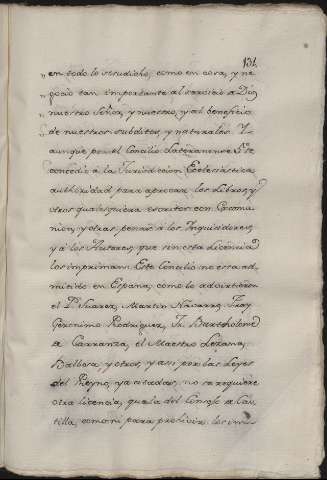 134
„ en todo lo sᵉ. dicho, como en cosa, y ne-
„ gocio tan importante al servicio de Dios
„ nuestro Señor, y nuestro, y al beneficio
„ de nuestros subditos, y naturales. Y
aunque por el Concilio Lateranense Vᵒ se
concedio a la Jurisdiccion Ecclesiastica
authoridad para aprovar los Libros, y
otros qualesquiera escritos con Comu-
nion, y otras penas a los Inquisidores,
y a los Autores, que sin esta Licencia
los impriman. Este Concilio no està ad-
mitido en España, como lo advirtieron
el P. Suarez, Martin Navarro, Fray
Geronimo Rodriguez, Fr. Bartholome
de Carranza, el Maestro Lezana,
Balboa, y otros, y assi por las Leyes
del Reyno, ya citadas, no se requiere
otra licencia, que la del Consejo de Cas-
tilla, como ni para prohivir los im-